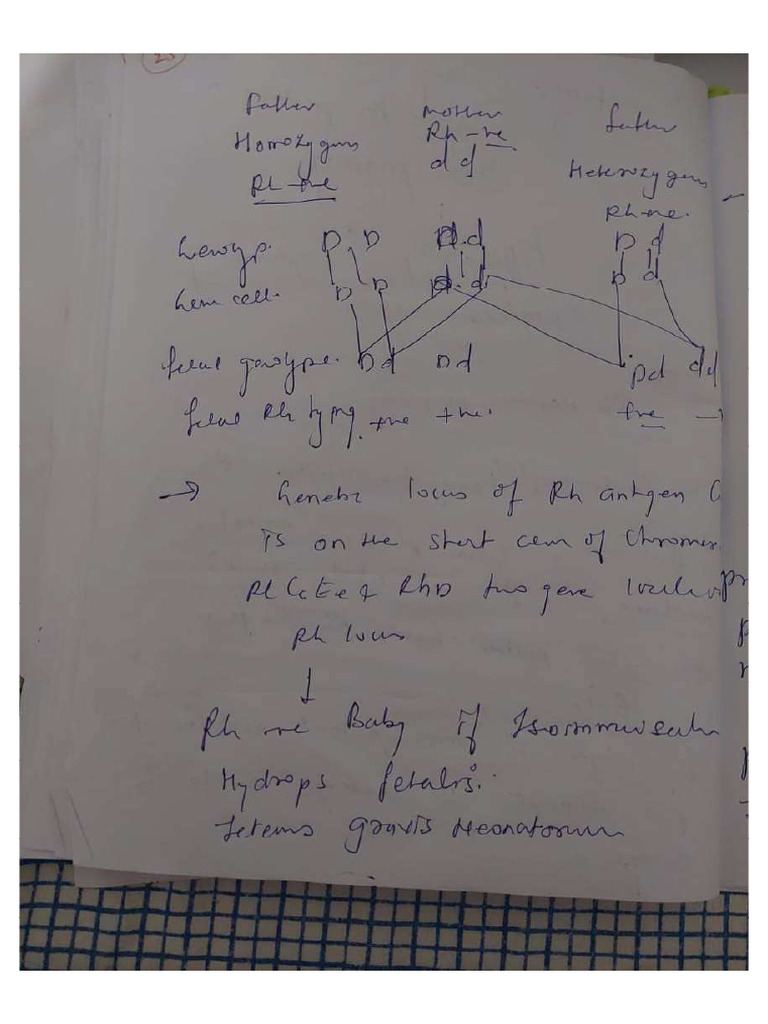 23
Father Mother Father
Homozygous Rh -ve
dd Heterozygous
Rh +ve Rh +ve.
Genotyp. D D d d D d
Germ cell. D D d d D d
fetal genotype. Dd Dd Dd dd
fetal Rh typing. +ve +ve. +ve
→ Genetic locus of Rh antigen C
is on the short arm of Chromos
Rh CcEe & RhD two gene
Rh locus
↓
Rh -ve Baby if Isoimmunisatn
Hydrops fetalis.
Icterus gravis neonatorum